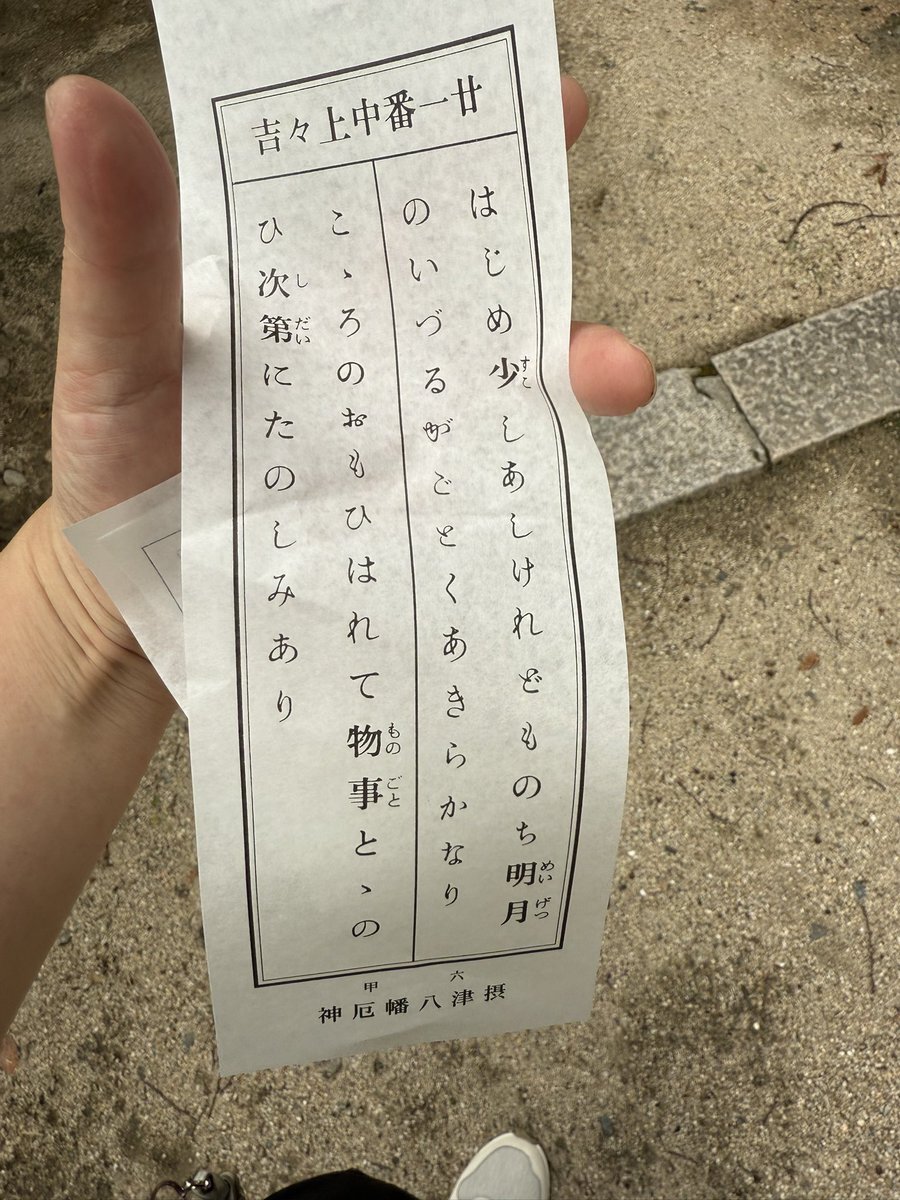 廿一番中上々吉
はじめ少しあしけれどものち明月
のいづるがごとくあきらかなり
こゝろのおもひはれて物事とゝの
ひ次第にたのしみあり
すこ
めいげつ
ものごと
しだい
六甲
摂津八幡厄神